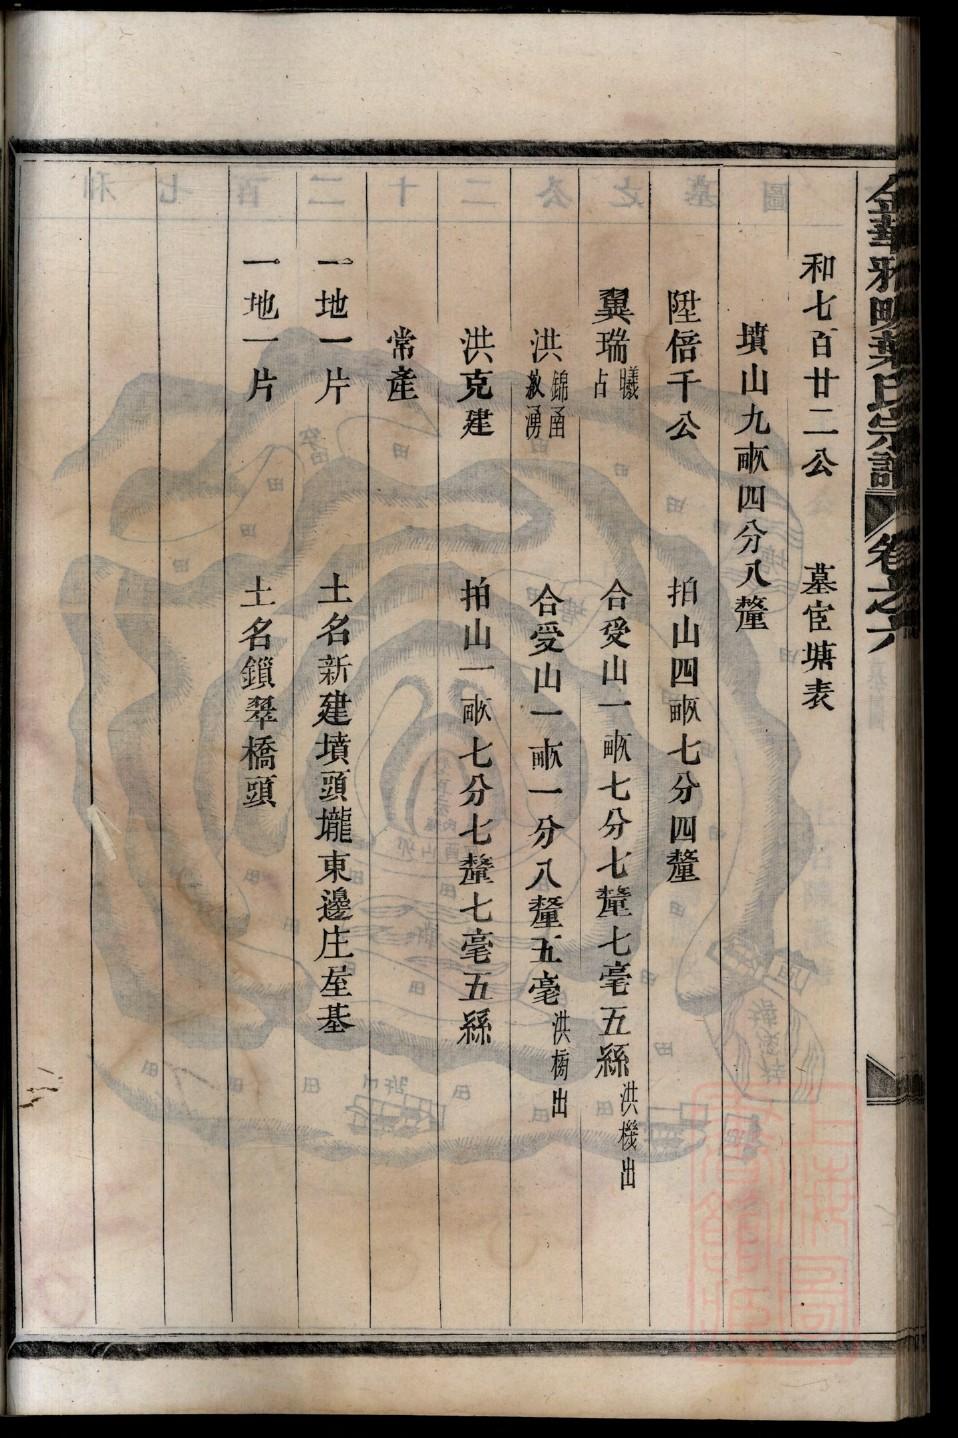 金華雅畈葉氏宗譜 卷之六
和七百廿二公 墓宦塘表
墳山九畝四分八釐
陞倍千公 拍山四畝七分四釐
翼瑞曦占 合受山一畝七分七釐七毫五絲洪機出
洪錦函敘湧 合受山一畝一分八釐五毫洪橋出
洪克建 拍山一畝七分七釐七毫五絲
常產
一地一片 土名新建墳頭壠東邊庄屋基
一地一片 土名鎖翠橋頭